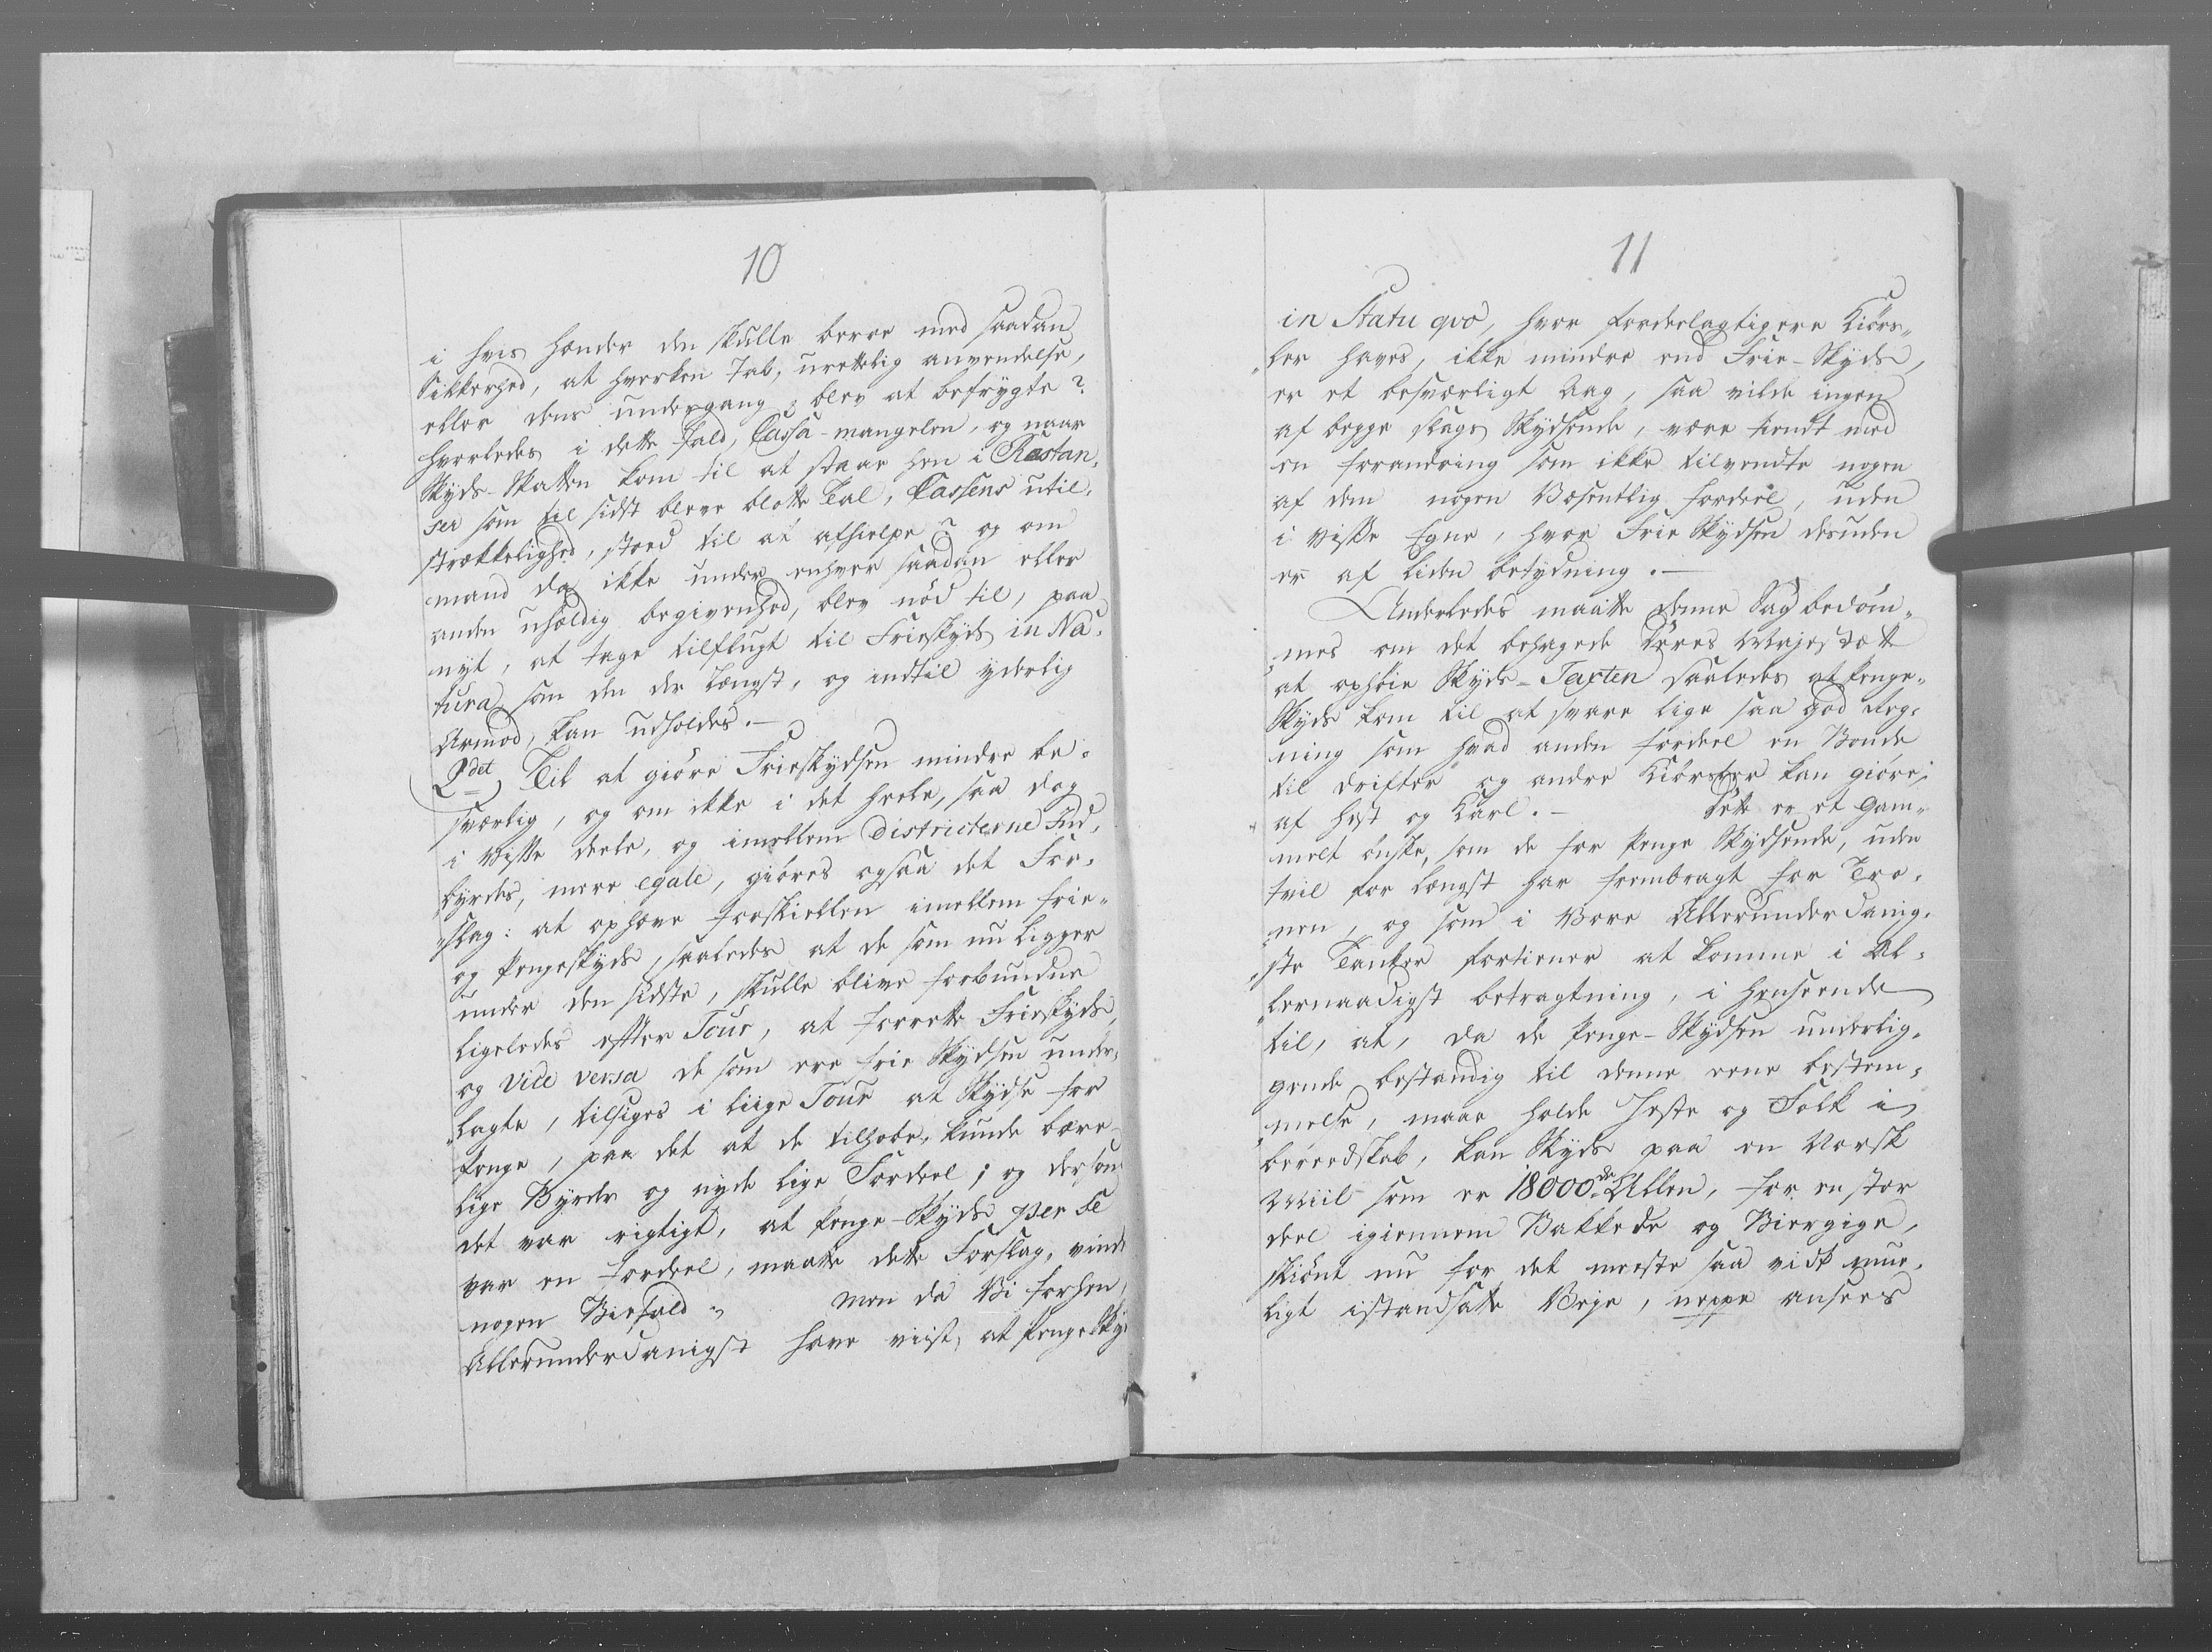 10
i hvis hænder den skulle beroe med saadan
Sikkerhed, at hverken Tab, urettelig anvendelse,
eller dens undergang, blev at befrygte?
hvorledes i dette fald, Cassa-mangelen, og naar
Skyds-Skatten kom til at staae hen i Restan,
ser som til sidst bleve blotte Tal, Cassens util,
strækkelighed, stoed til at afhielpe? og om
mand da ikke under enhver saadan eller
anden uheldig begivenhed, blev nød til, paa
nyt, at tage tilflugt til Frieskyds in Na,
tura, som den der længst, og indtil yderlig
Armod, kan udholdes.-
2det Til at giøre Frieskydsen mindre be,
sværlig, og om ikke i det heele, saa dog
i visse deele, og imellem Districterne Ind,
byrdes, mere egale, giøres ogsaa det For,
slag: at ophæve forskiellen imellem frie,
og Pengeskyds, saaledes at de som nu ligger
under den sidste, skulle blive forbundne
ligeledes efter Tour, at forrette Frieskyds,
og vice versa de som ere frie Skydsen under,
lagte, tilsiges i liige Tour at Skydse for
Penge, paa det at de tilhobe, kunde bære
lige Byrder og nyde lige Fordeel; og dersom
det var rigtigt, at Penge-Skyds per se
var en fordeel, maatte dette Forslag, vinde
nogen Biefald. Men da Vi forhen,
Allerunderdanigst have viist, at Penge Sky
11
in Statu qvo, hvor fordeelagtigere Kiørs,,
ler haves, ikke mindre end Frie-Skyds,
er et besværligt Aag, saa vilde ingen
af begge slags Skydsende, være tient med
en forandring som ikke tilvendte nogen
af dem nogen Væsentlig fordeel, uden
i visse Egne, hvor Frie Skydsen desuden
er af liden betydning.-
Anderledes maatte denne Sag bedøm,,
mes om det behagede Deres Majestæt
at ophøie Skyds-Taxten saaledes at Penge,
Skyds kom til at svare lige saa god Reg,
ning som hvad anden fordeel en Bonde
til drifter og andre Kiørsler kan giøre,
af hest og Karl.- Dette er et gam,,
melt ønske, som de for Penge Skydsende, uden
tvil for længst har frembragt for Tro,
nen, og som i Vore Allerunderdanig,
ste Tanker fortiener at komme i Al,
lernaadigst betragtning, i henseende
til, at, da de Penge-Skydsen underlig,
gende bestandig til denne eene bestem,
melse, maae holde Heste og Folk i
beredskab, kan Skyds paa en Norsk
Miil som er 18000de Allen, for en stor
deel igiennem Bakkede og Biergige,
skiønt nu for det meeste saa vidt mue,
ligt istandsatte Veje, neppe ansees